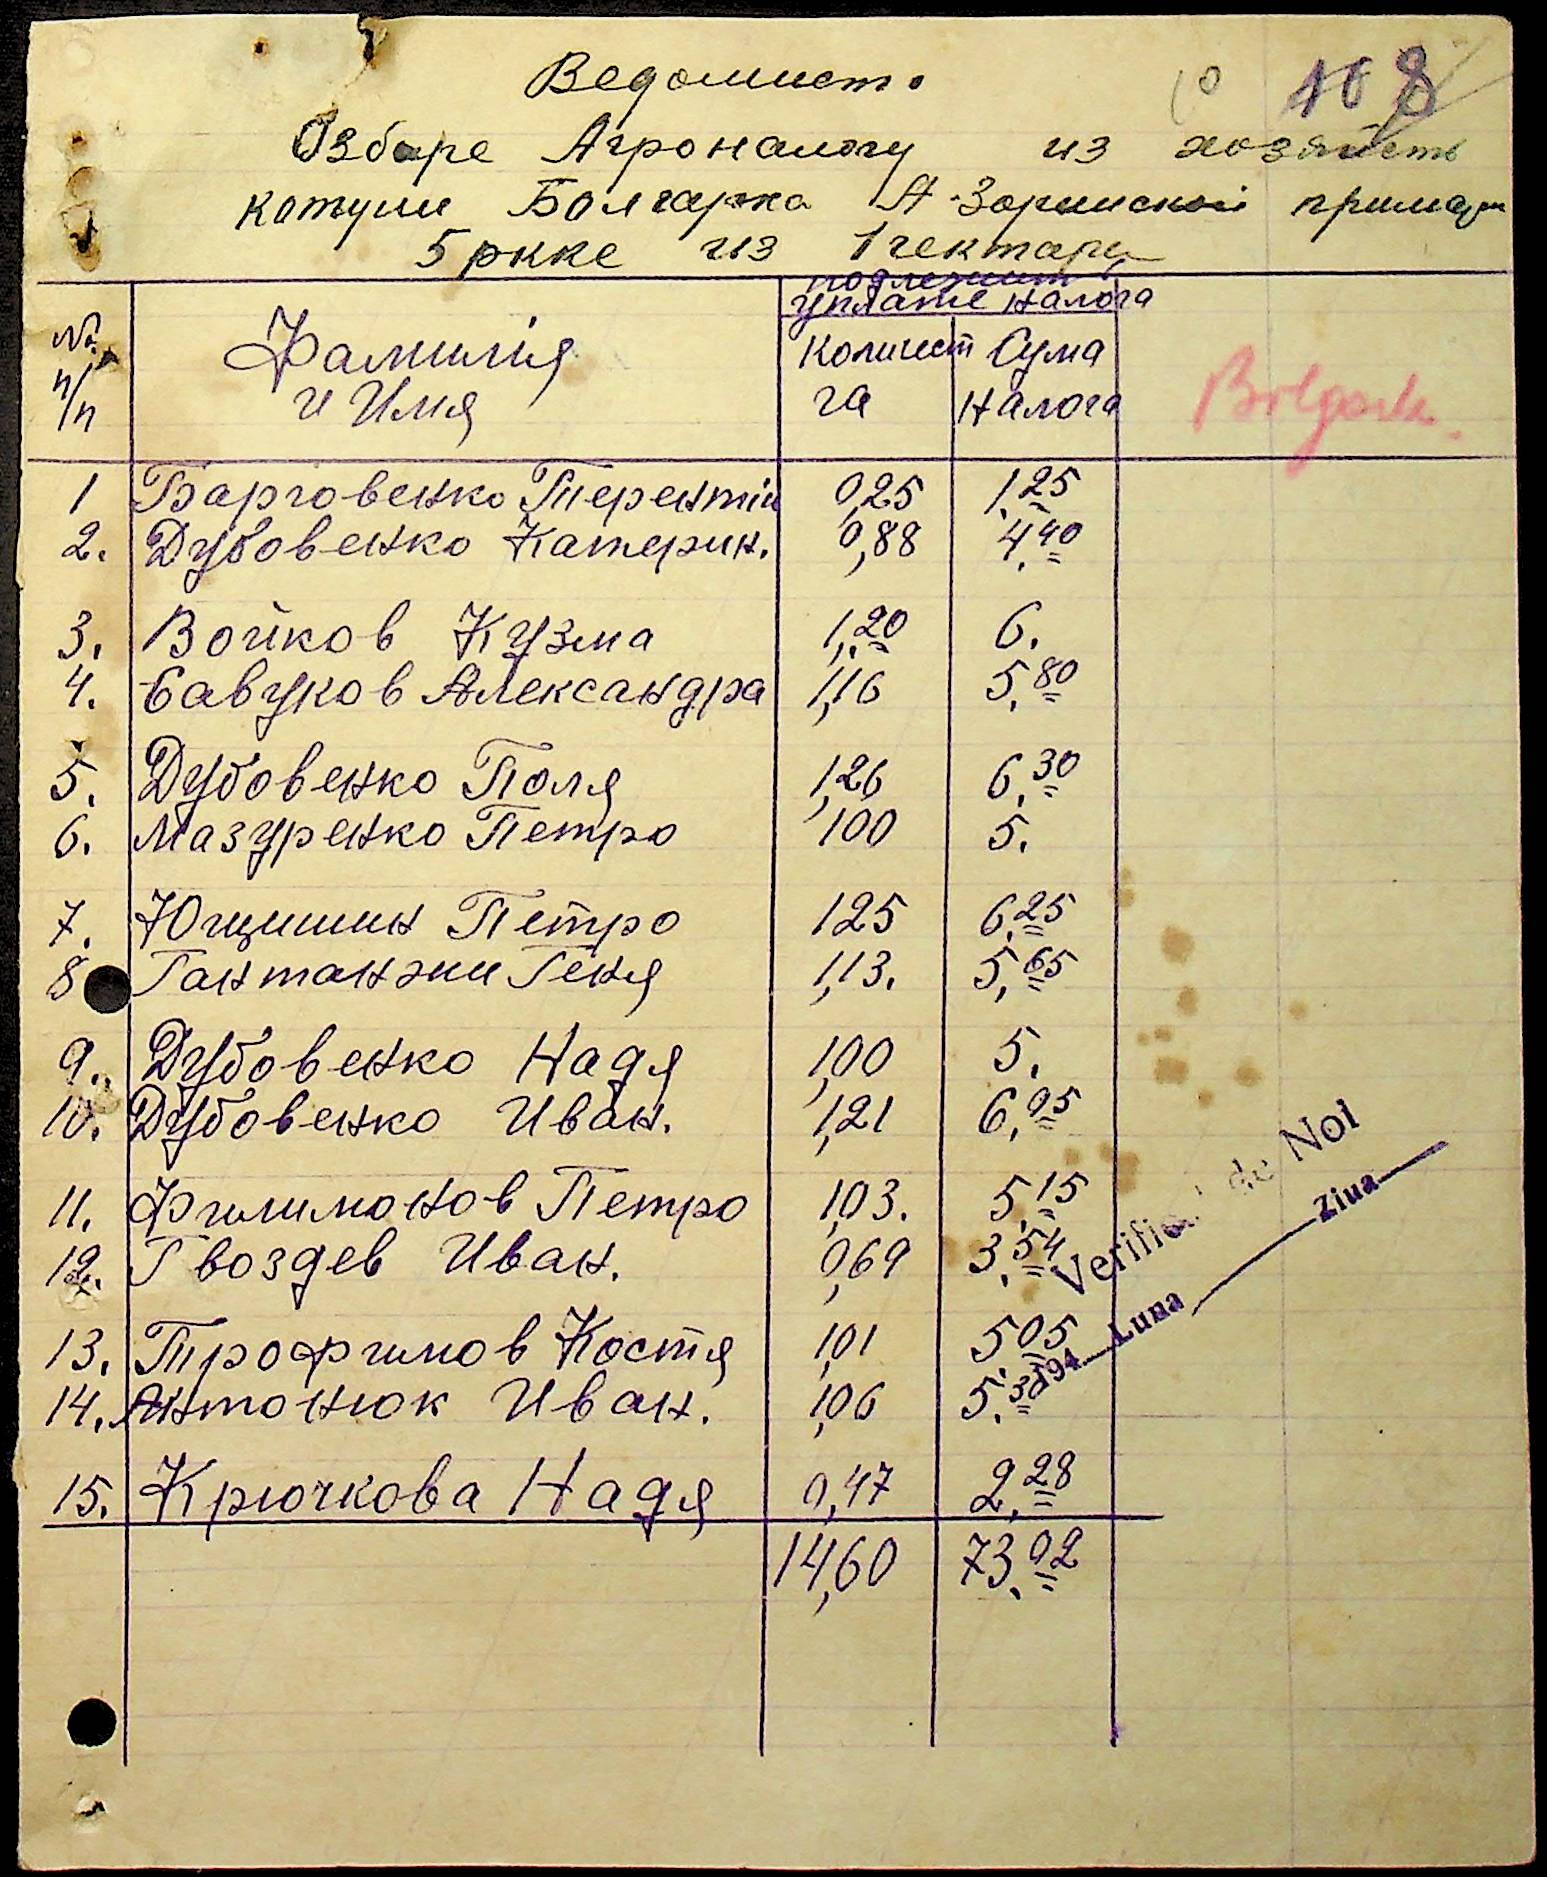 Ведомист.
10 108
О зборе Агроналогу из хозяйсть
котуни Болгарка А-Зоринской примари
5 ркке из 1 гектару
подлежит
уплате налога
№ п/п Фамилія и Имя Количест га Сума налога
Bolgark.
1 Барговенко Терентій 0,25 1,25
2. Дубовенко Катерин. 0,88 4,40
3. Войков Кузма 1,20 6.
4. Савуков Александра 1,16 5,80
5. Дубовенко Поля 1,26 6,30
6. Мазуренко Петро 1,00 5.
7. Ющишин Петро 125 6,25
8 Гантанжи Геня 1,13. 5,65
9. Дубовенко Надя 1,00 5.
10. Дубовенко Иван. 1,21 6,05
11. Филимонов Петро 1,03. 5,15
12. Гвоздев Иван. 0,69 3,54
13. Трофимов Костя 1,01 5,05
14. Антонюк Иван. 1,06 5,30
15. Крючкова Надя 0,47 2,28
14,60 73,02
Verificat de Noi
194 Luna Ziua